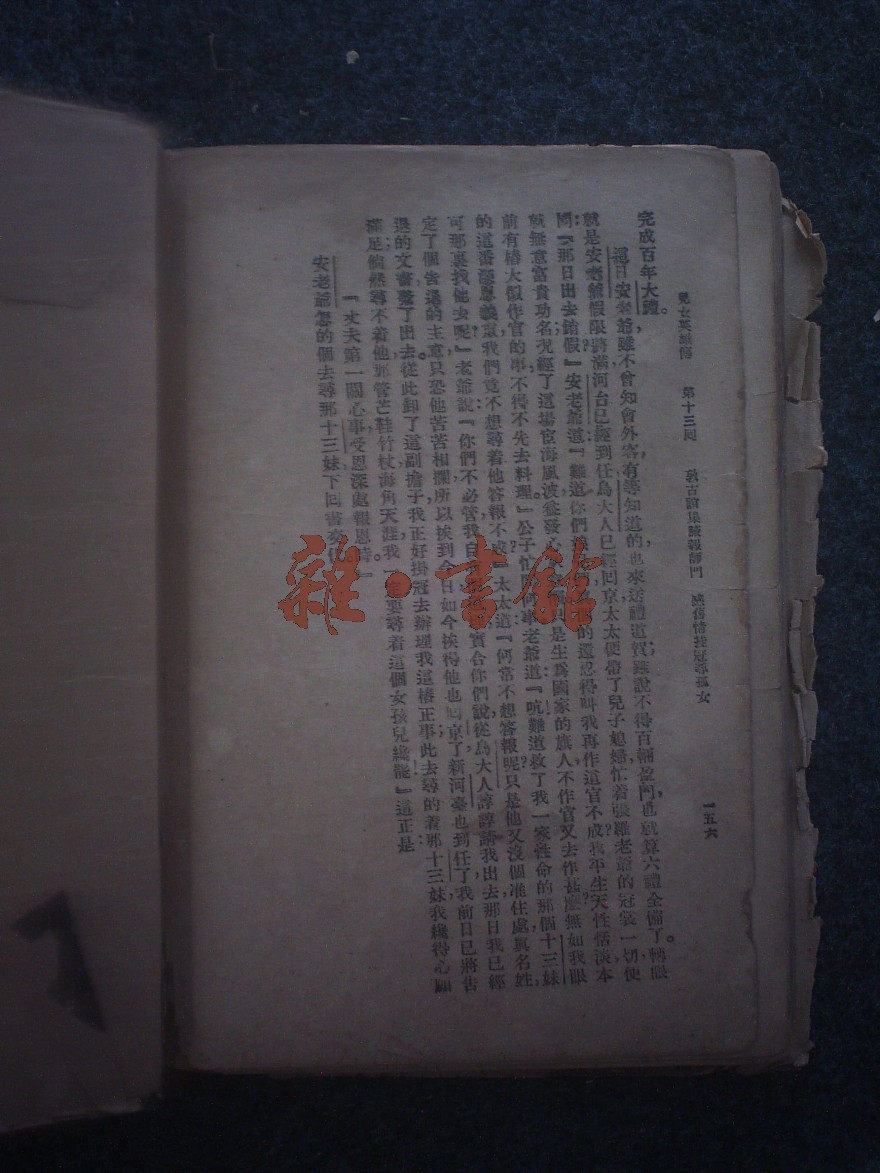 兒女英雄傳 第十三回 敦古誼集腋報師門 感舊情挂冠尋孤女 一五六
完成百年大禮。
這日安老爺雖不曾知會外客，有等知道的也來送禮道賀，雖說不得百輛盈門，也就算六禮全備了。轉眼
就是安老爺假限將滿，河台已經到任，烏大人已經回京，太太便帶了兒子媳婦忙着張羅老爺的冠裳一切，便
問：『那日出去銷假？』安老爺道：『難道你們 的還忍得叫我再作這官不成？我平生天性恬淡，本
就無意富貴功名，況經了這場宦海風波，益發心 是生爲國家的旗人，不作官又去作甚麼？無如我眼
前有樁大似作官的事，不得不先去料理。』公子忙問何事。老爺道：『吭！難道救了我一家性命的那個十三妹
的這番深恩重義，我們竟不想尋着他答報不成？』太太道：『何嘗不想答報呢？只是他又沒個准住處、眞名姓，
可那裏找他去呢？』老爺說：『你們不必管，我自有 實合你們說，從烏大人諄諄諭我出去那日，我已經
定了個告退的主意，只恐他苦苦相攔，所以挨到今日。如今挨得他也回京了，新河臺也到任了，我前日已將告
退的文書發了出去，從此卸了這副擔子，我正好掛冠去辦理我這樁正事。此去尋的着那十三妹，我纔得心願
滿足；倘然尋不着他，那管芒鞋竹杖，海角天涯，我一定要尋着這個女孩兒纔罷。』這正是：
『丈夫第一關心事，受恩深處報恩時。』
安老爺怎的個去尋那十三妹，下回書交代。
雜·書館